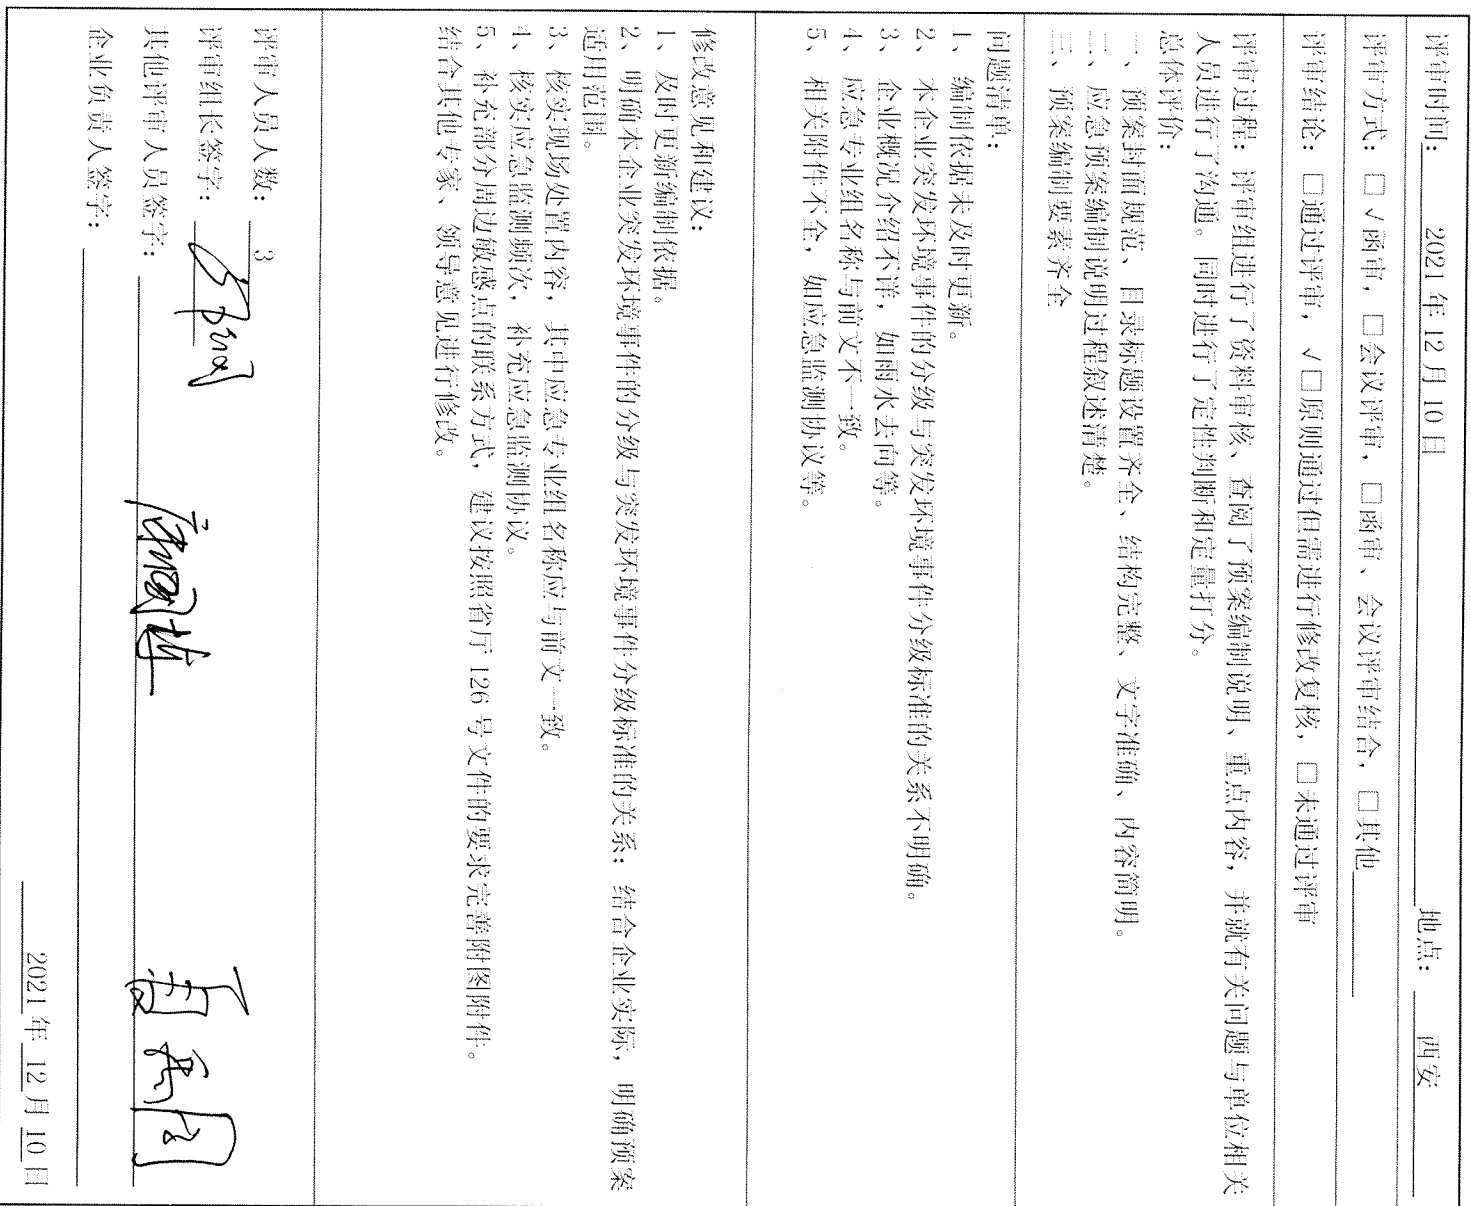 评审时间： 2021 年 12 月 10 日 地点： 西安
评审方式：□√函审，□会议评审，□函审、会议评审结合，□其他
评审结论：□通过评审，√□原则通过但需进行修改复核，□未通过评审
评审过程：评审组进行了资料审核、查阅了预案编制说明、重点内容，并就有关问题与单位相关
人员进行了沟通。同时进行了定性判断和定量打分。
总体评价：
一、预案封面规范、目录标题设置齐全、结构完整、文字准确、内容简明。
二、应急预案编制说明过程叙述清楚。
三、预案编制要素齐全
问题清单：
1、编制依据未及时更新。
2、本企业突发环境事件的分级与突发环境事件分级标准的关系不明确。
3、企业概况介绍不详，如雨水去向等。
4、应急专业组名称与前文不一致。
5、相关附件不全，如应急监测协议等。
修改意见和建议：
1、及时更新编制依据。
2、明确本企业突发环境事件的分级与突发环境事件分级标准的关系；结合企业实际，明确预案
适用范围。
3、核实现场处置内容，其中应急专业组名称应与前文一致。
4、核实应急监测频次，补充应急监测协议。
5、补充部分周边敏感点的联系方式，建议按照省厅 126 号文件的要求完善附图附件。
结合其他专家、领导意见进行修改。
评审人员人数： 3
评审组长签字：
其他评审人员签字：
企业负责人签字：
2021 年 12 月 10 日